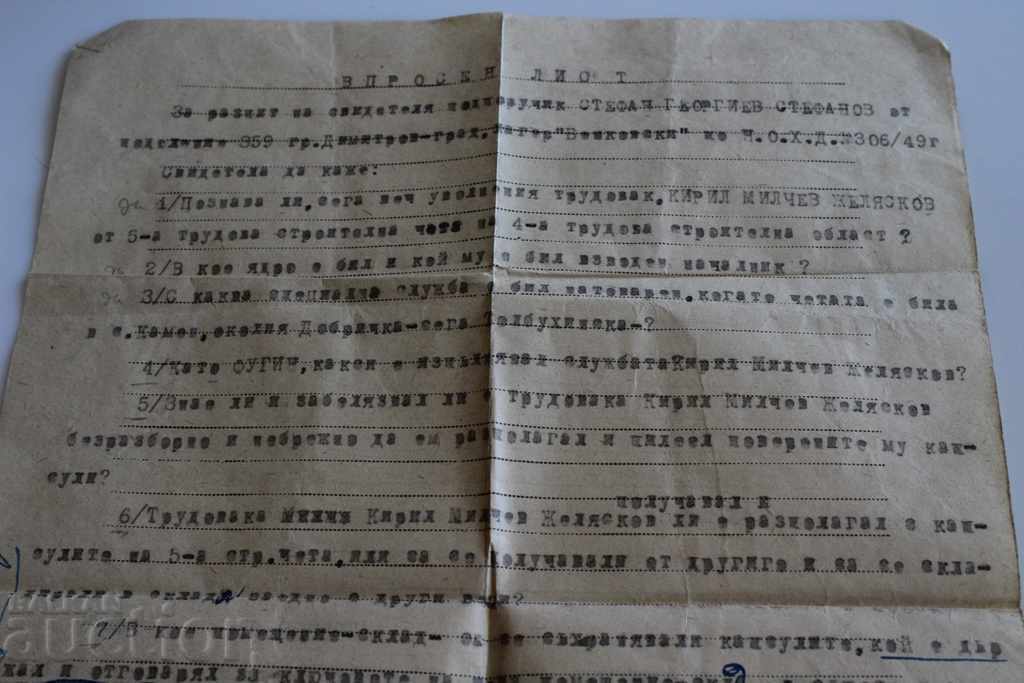 ВПРОСЕН ЛИСТ
За разпит на свидетеля подпоручик СТЕФАН ГЕОРГИЕВ СТЕФАНОВ от
поделение 959 гр.Димитров-град,лагер "Бенковски" по Н.О.Х.Д.№306/49г
Свидетеля да каже:
да 1/Познава ли,сега веч уволнения трудовак,КИРИЛ МИЛЧЕВ ЖЕЛЯСКОВ
от 5-а трудова строителна чета на 4-а трудова строителна област?
да 2/В кое ядро е бил и кой му е бил взводен началник?
да 3/С каква специална служба е бил натоварен,когато четата е била
в с.Камен,околия Добричка-сега Толбухинска-?
4/Като ФУГИН,какси е изпълнявал службатаКирил Милчев Желясков?
5/Знае ли и забелязвал ли е Трудовака Кирил Милчев Желясков
безразборно и небрежно да ем разполагал и пилеел поверените му кап-
сули?
получавал и
6/Трудовака Милчв Кирил Милчев Желясков ли е разполагал с кап-
сулите на 5-а стр.чета,или са се получавали от другиго и са се скла-
в склада заедно с други вещи?
7/В кое помещение-склат- са се съхранявали капсулите,кой е дър
жал и отговарял за ключовете на